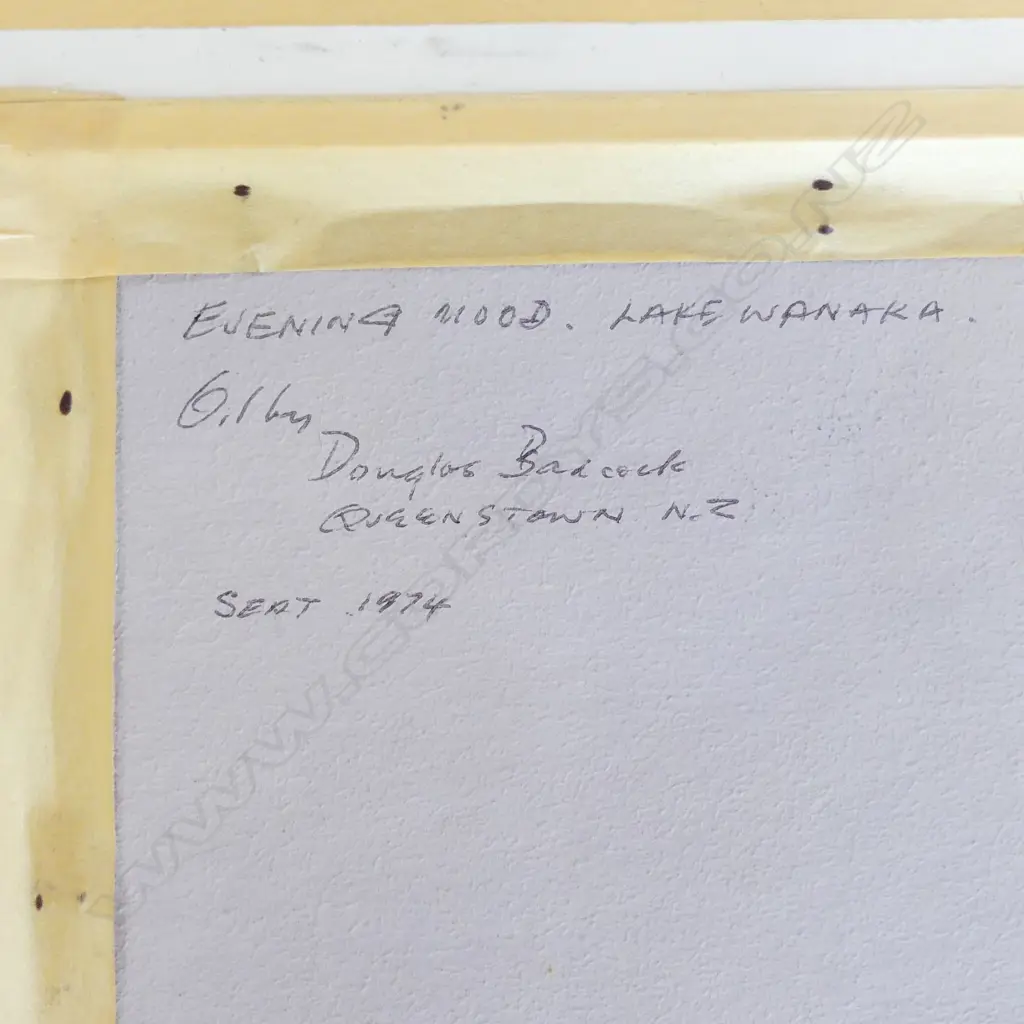 EVENING MOOD. LAKE WANAKA.
Oil by
Douglas Badcock
QUEENSTOWN N.Z
SEPT 1974
WWW.CORDYS.CO.NZ